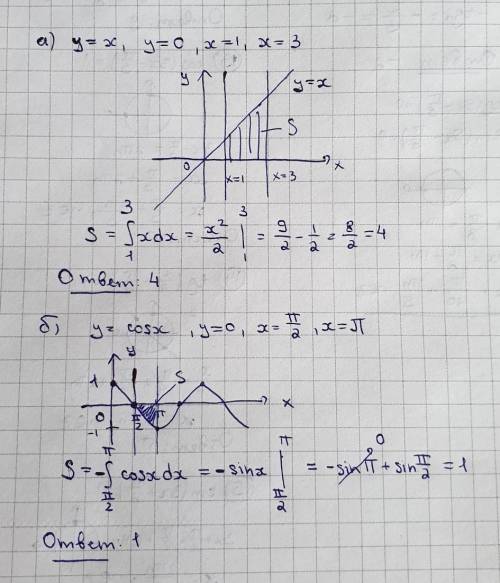 а) y = x, y = 0, x = 1, x = 3
y
y = x
S
0
x=1
x=3
x
S = ∫₁³ x dx = x²/2 |₁³ = 9/2 - 1/2 = 8/2 = 4
Ответ: 4
б) y = cosx, y = 0, x = π/2, x = π
y
1
S
0
π/2
π
x
-1
S = -∫_{π/2}^{π} cosx dx = -sinx |_{π/2}^{π} = -sinπ + sin π/2 = 1
0
Ответ: 1